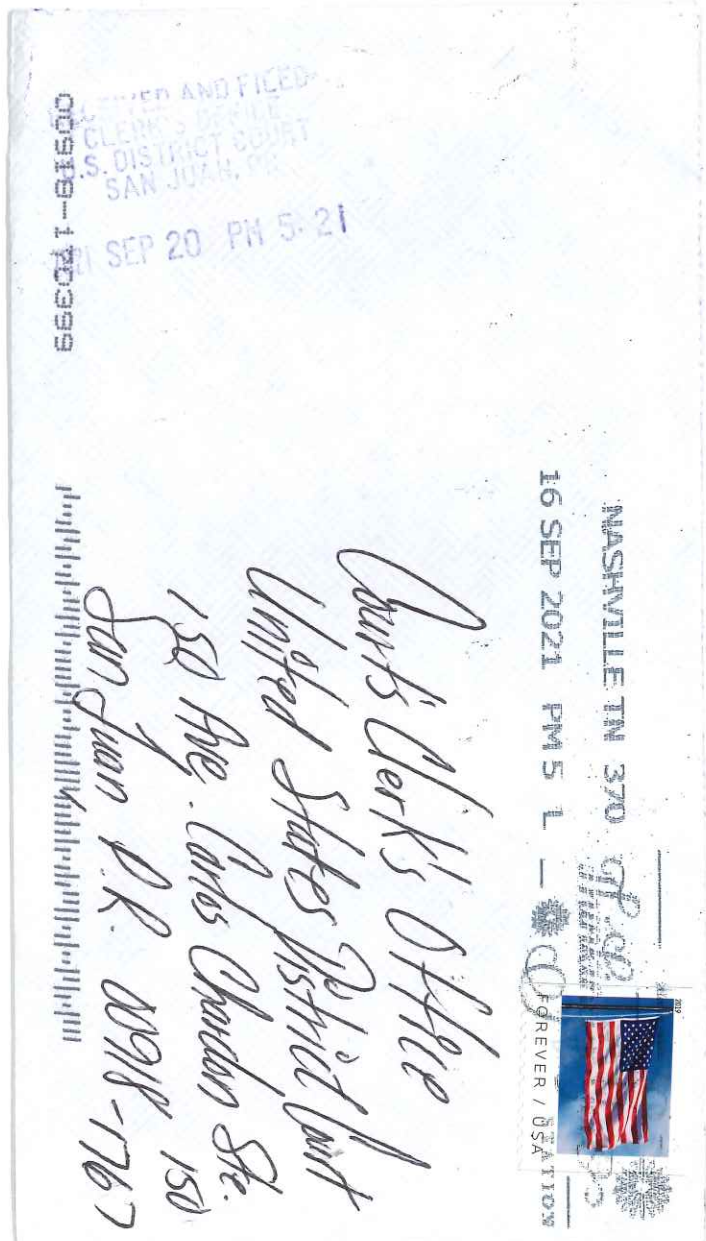 RECEIVED AND FILED
CLERK'S OFFICE
U.S. DISTRICT COURT
SAN JUAN, PR
SEP 20 PM 5:21
NASHVILLE TN 370
16 SEP 2021 PM 5 L
2019
FOREVER / USA
Court's Clerk's Office
United States District Court
150 Ave. Carlos Chardon Ste.
150
San Juan P.R. 00918-1767
00918-170399